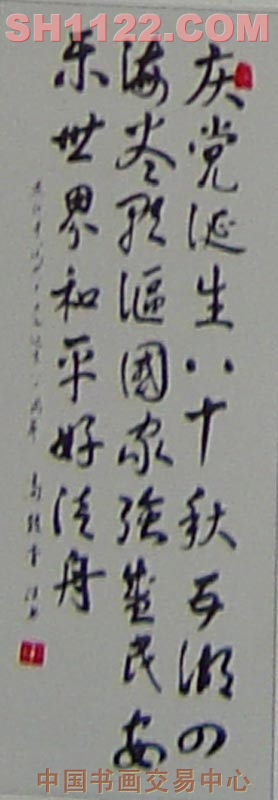 SH1122.COM
庆党诞生八十秋五湖四
海尽歌讴國家強盛民安
乐世界和平好泛舟
中国书画交易中心